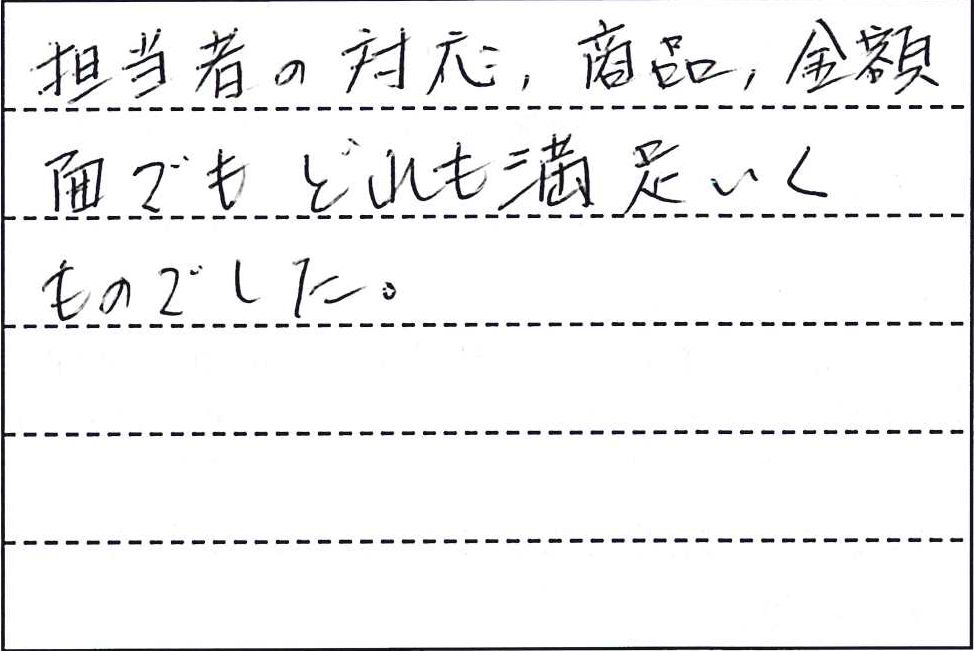 担当者の対応,商品,金額
面でもどれも満足いく
ものでした。